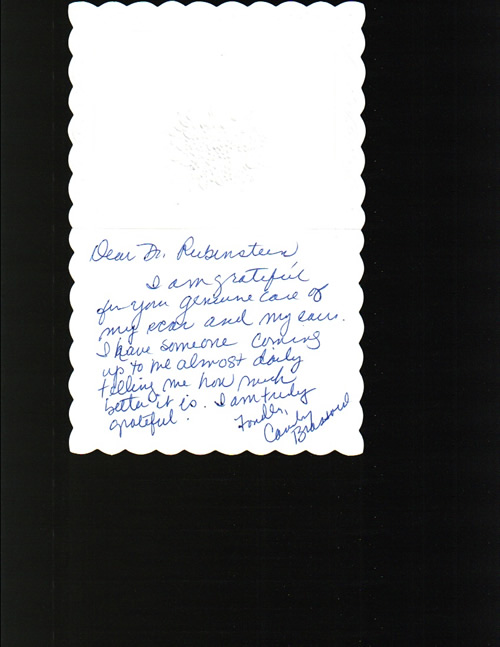 Dear Dr. Rubenstein
I am grateful
for your genuine care of
my scar and my ears.
I have someone coming
up to me almost daily
telling me how much
better it is. I am truly
grateful.
Fondly,